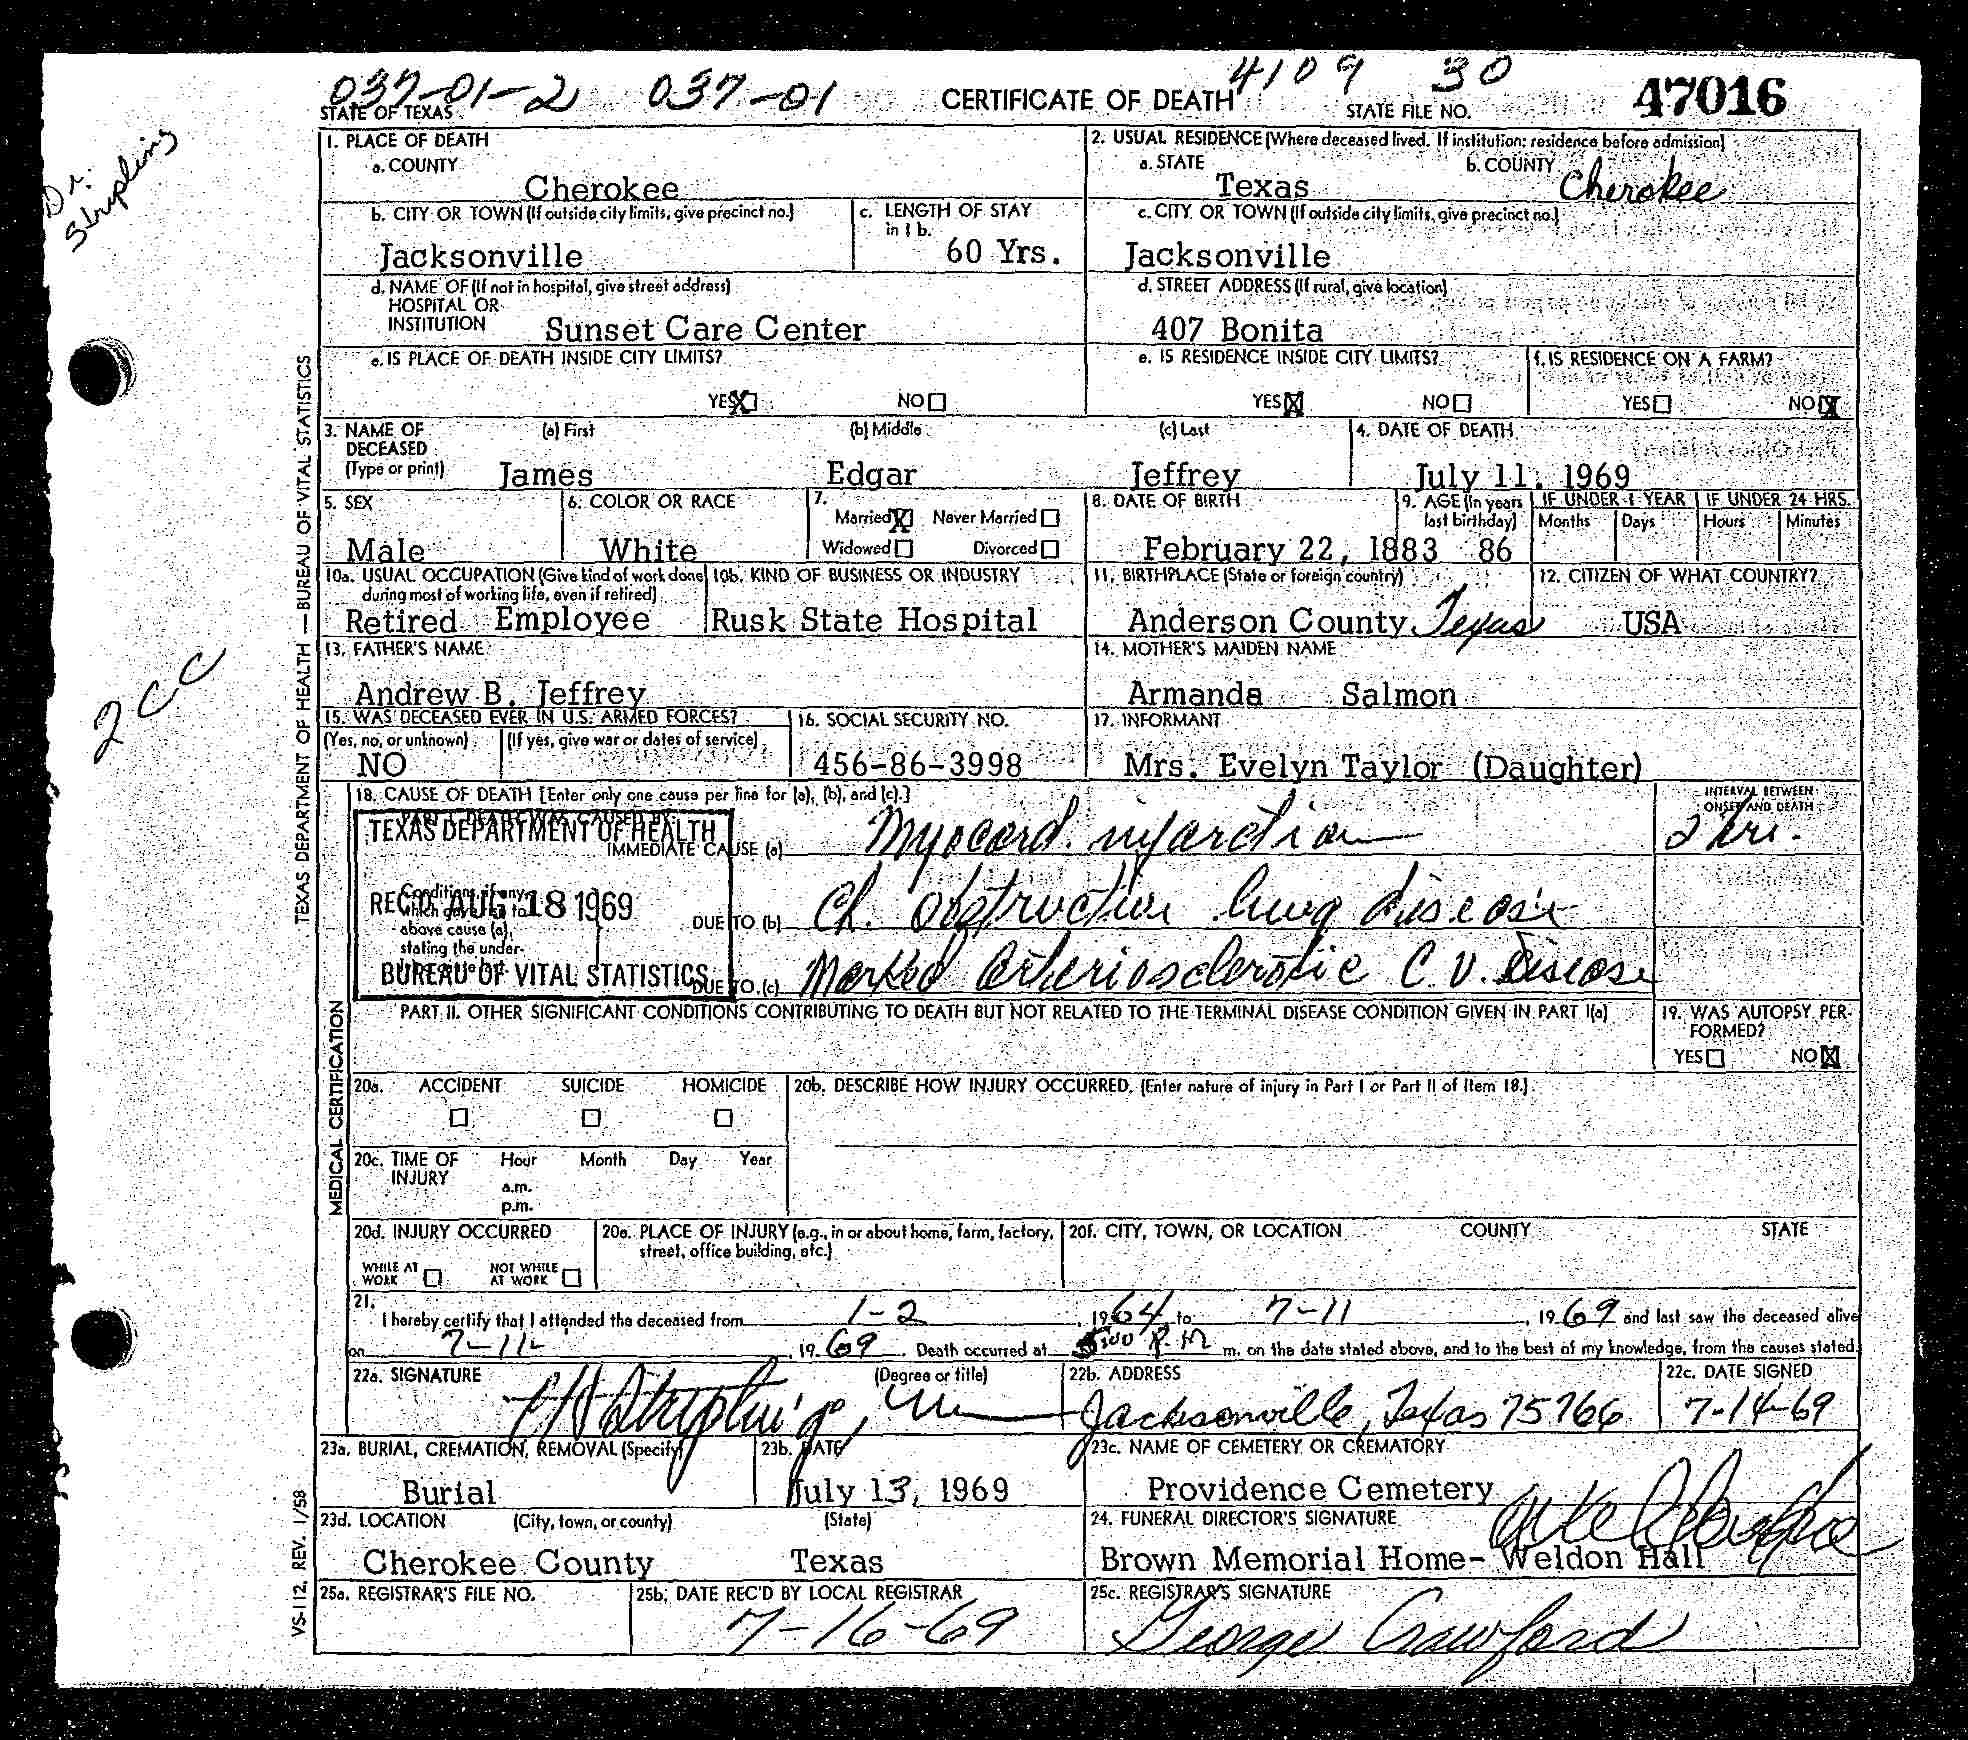 037-01-2 037-01 4109 30
STATE OF TEXAS CERTIFICATE OF DEATH STATE FILE NO. 47016
Dr. Striplings
2 CC
TEXAS DEPARTMENT OF HEALTH — BUREAU OF VITAL STATISTICS
1. PLACE OF DEATH
a. COUNTY
Cherokee
2. USUAL RESIDENCE (Where deceased lived. If institution: residence before admission)
a. STATE b. COUNTY
Texas Cherokee
b. CITY OR TOWN (If outside city limits, give precinct no.)
Jacksonville
c. LENGTH OF STAY
in 1 b.
60 Yrs.
c. CITY OR TOWN (If outside city limits, give precinct no.)
Jacksonville
d. NAME OF (If not in hospital, give street address)
HOSPITAL OR
INSTITUTION Sunset Care Center
d. STREET ADDRESS (If rural, give location)
407 Bonita
e. IS PLACE OF DEATH INSIDE CITY LIMITS?
YES X NO
e. IS RESIDENCE INSIDE CITY LIMITS?
YES X NO
f. IS RESIDENCE ON A FARM?
YES NO X
3. NAME OF DECEASED (Type or print)
(a) First (b) Middle (c) Last
James Edgar Jeffrey
4. DATE OF DEATH
July 11, 1969
5. SEX
Male
6. COLOR OR RACE
White
7.
Married X Never Married
Widowed Divorced
8. DATE OF BIRTH
February 22, 1883
9. AGE (In years
last birthday)
86
IF UNDER 1 YEAR IF UNDER 24 HRS.
Months Days Hours Minutes
10a. USUAL OCCUPATION (Give kind of work done
during most of working life, even if retired)
Retired Employee
10b. KIND OF BUSINESS OR INDUSTRY
Rusk State Hospital
11. BIRTHPLACE (State or foreign country)
Anderson County Texas
12. CITIZEN OF WHAT COUNTRY?
USA
13. FATHER'S NAME
Andrew B. Jeffrey
14. MOTHER'S MAIDEN NAME
Armanda Salmon
15. WAS DECEASED EVER IN U.S. ARMED FORCES?
(Yes, no, or unknown) (If yes, give war or dates of service)
NO
16. SOCIAL SECURITY NO.
456-86-3998
17. INFORMANT
Mrs. Evelyn Taylor (Daughter)
MEDICAL CERTIFICATION
18. CAUSE OF DEATH [Enter only one cause per line for (a), (b), and (c).]
PART I. DEATH WAS CAUSED BY:
INTERVAL BETWEEN
ONSET AND DEATH
IMMEDIATE CAUSE (a) Myocard. infarction 2 hrs.
Conditions, if any,
which gave rise to
above cause (a),
stating the under-
DUE TO (b) Ch. obstructive lung disease
DUE TO (c) Marked Arteriosclerotic C.V. Disease
TEXAS DEPARTMENT OF HEALTH
REC'D AUG 18 1969
BUREAU OF VITAL STATISTICS
PART II. OTHER SIGNIFICANT CONDITIONS CONTRIBUTING TO DEATH BUT NOT RELATED TO THE TERMINAL DISEASE CONDITION GIVEN IN PART I(a)
19. WAS AUTOPSY PER-
FORMED?
YES NO X
20a. ACCIDENT SUICIDE HOMICIDE
20b. DESCRIBE HOW INJURY OCCURRED. (Enter nature of injury in Part I or Part II of Item 18.)
20c. TIME OF Hour Month Day Year
INJURY
a.m.
p.m.
20d. INJURY OCCURRED
WHILE AT WORK NOT WHILE AT WORK
20e. PLACE OF INJURY (e.g., in or about home, farm, factory,
street, office building, etc.)
20f. CITY, TOWN, OR LOCATION COUNTY STATE
21.
I hereby certify that I attended the deceased from 1-2, 1964 to 7-11, 1969 and last saw the deceased alive
on 7-11, 1969. Death occurred at 5:00 P.M m. on the date stated above, and to the best of my knowledge, from the causes stated.
22a. SIGNATURE (Degree or title)
22b. ADDRESS
Jacksonville, Texas 75766
22c. DATE SIGNED
7-14-69
23a. BURIAL, CREMATION, REMOVAL (Specify)
Burial
23b. DATE
July 13, 1969
23c. NAME OF CEMETERY OR CREMATORY
Providence Cemetery
23d. LOCATION (City, town, or county) (State)
Cherokee County Texas
24. FUNERAL DIRECTOR'S SIGNATURE
Brown Memorial Home- Weldon Hall
25a. REGISTRAR'S FILE NO.
25b. DATE REC'D BY LOCAL REGISTRAR
7-16-69
25c. REGISTRAR'S SIGNATURE
George Crawford
VS-112, REV. 1/58